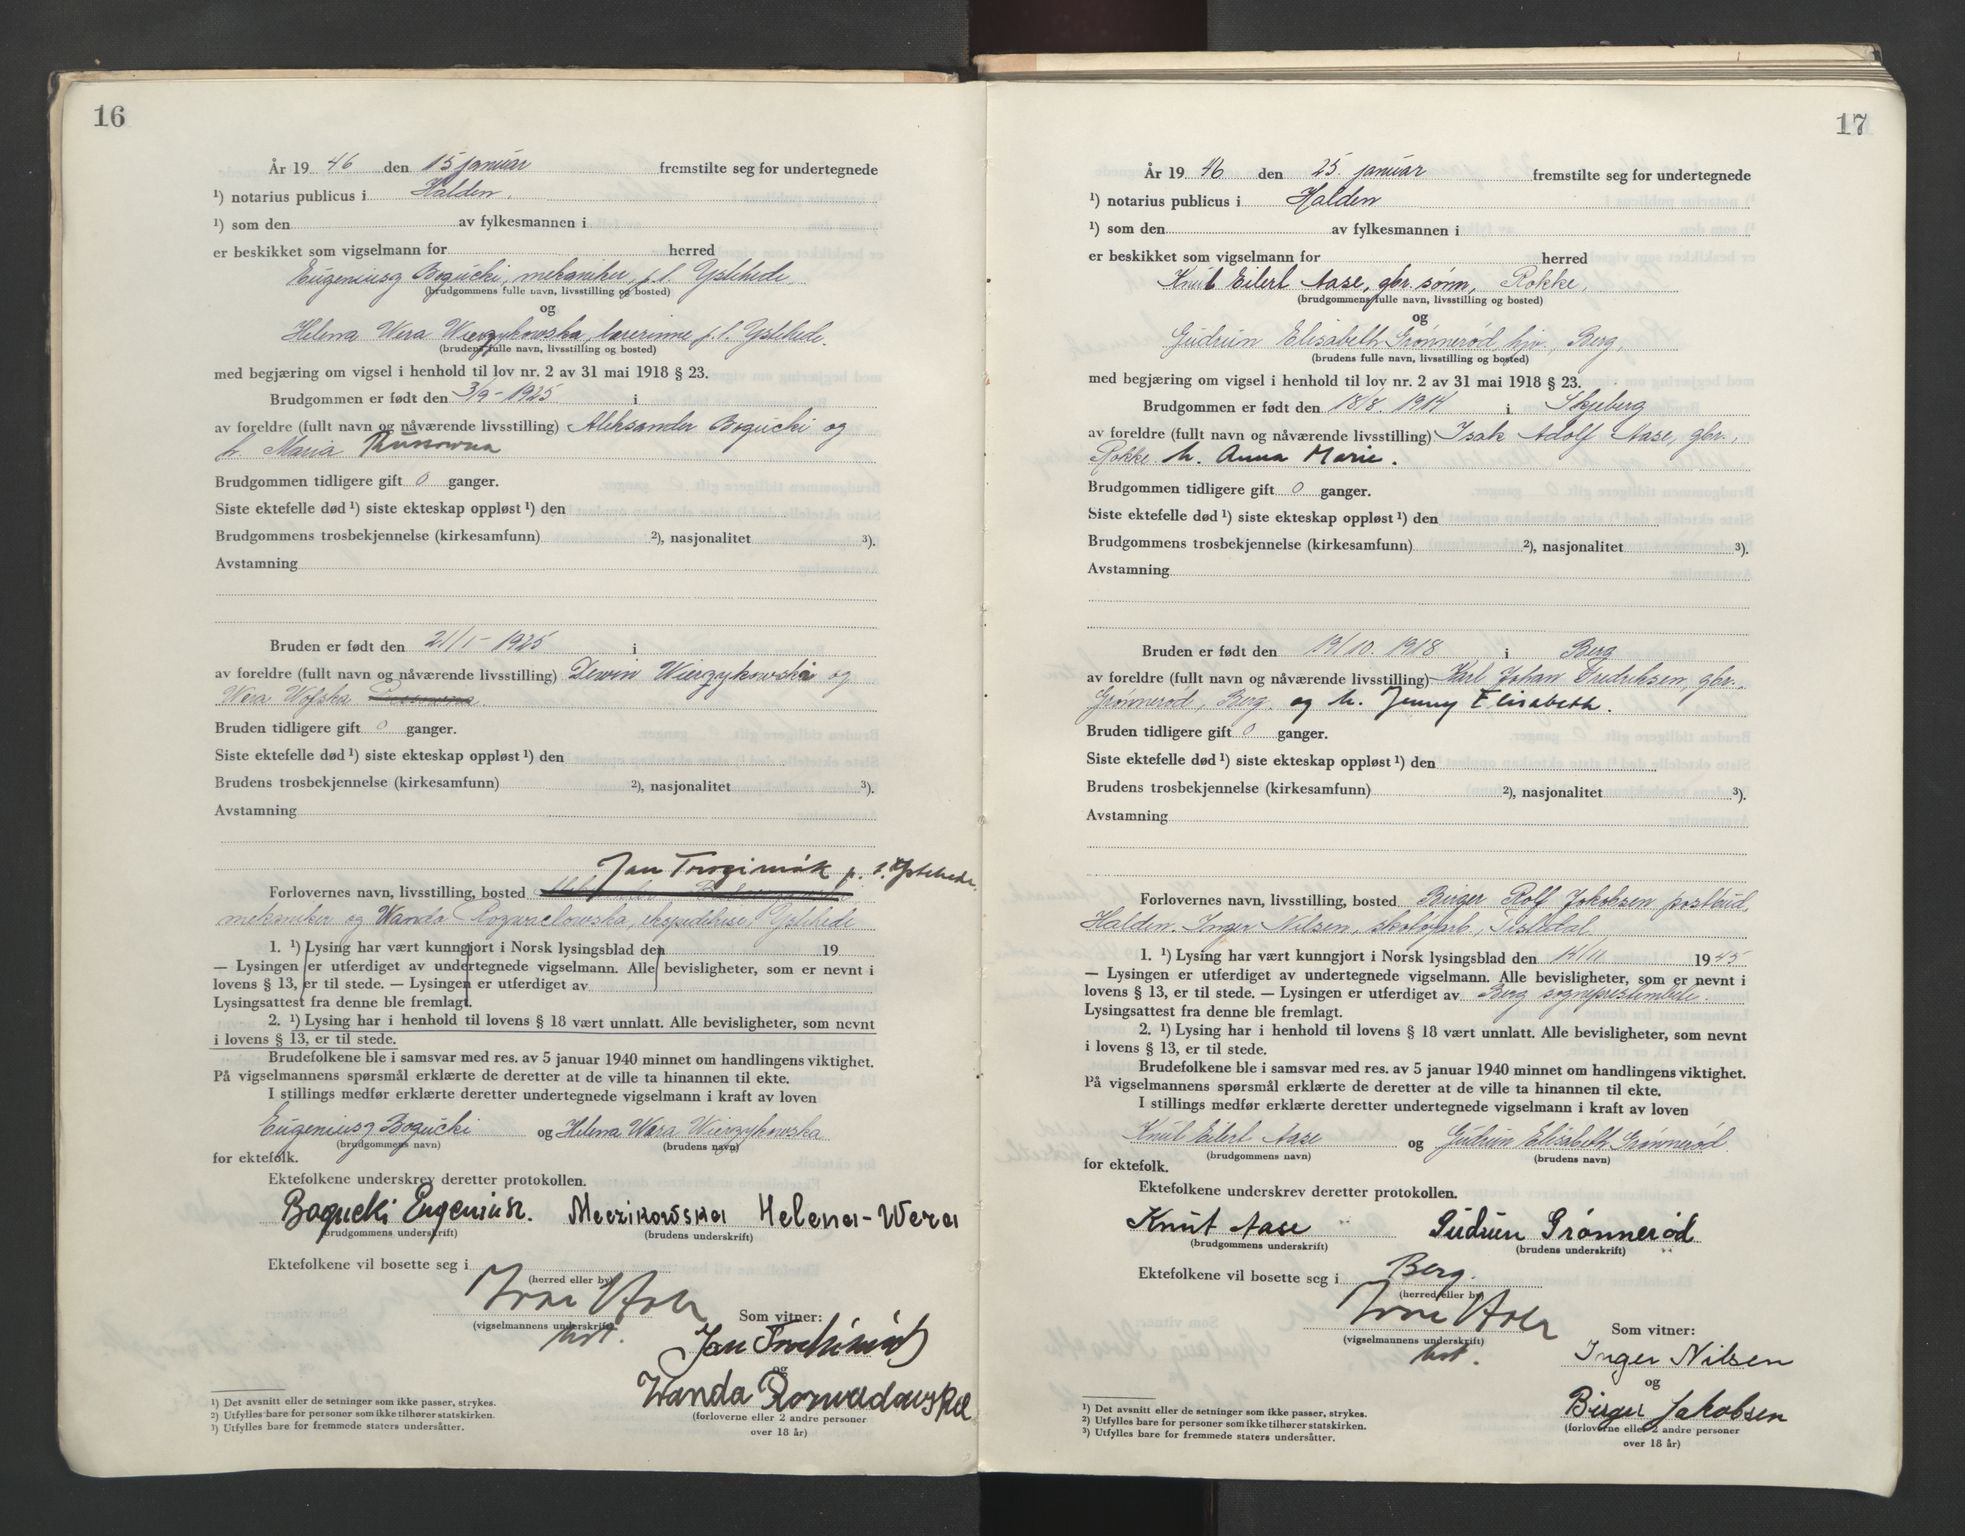 16
År 19 46 den 15 januar fremstilte seg for undertegnede
¹) notarius publicus i Halden.
¹) som den av fylkesmannen i
er beskikket som vigselmann for herred
Eugeniusz Bogucki, mekaniker, p.t. Ystehede.
(brudgommens fulle navn, livsstilling og bosted)
og
Helena Wera Wierzykowska, lærerinne p.t. Ystehede.
(brudens fulle navn, livsstilling og bosted)
med begjæring om vigsel i henhold til lov nr. 2 av 31 mai 1918 § 23.
Brudgommen er født den 3/9-1925 i
av foreldre (fullt navn og nåværende livsstilling) Aleksander Bogucki og
h. Maria
Brudgommen tidligere gift 0 ganger.
Siste ektefelle død¹) siste ekteskap oppløst¹) den
Brudgommens trosbekjennelse (kirkesamfunn) ²), nasjonalitet ³).
Avstamning
Bruden er født den 21/1-1925 i
av foreldre (fullt navn og nåværende livsstilling) Wierzykowski og
Wera
Bruden tidligere gift 0 ganger.
Siste ektefelle død¹) siste ekteskap oppløst¹) den
Brudens trosbekjennelse (kirkesamfunn) ²), nasjonalitet ³).
Avstamning
Jan p.t. Ystehede.
Forlovernes navn, livsstilling, bosted
mekaniker og Wanda Ystehede
1. ¹) Lysing har vært kunngjort i Norsk lysingsblad den 19
— Lysingen er utferdiget av undertegnede vigselmann. Alle bevisligheter, som er nevnt i
lovens § 13, er til stede. — Lysingen er utferdiget av
Lysingsattest fra denne ble fremlagt.
2. ¹) Lysing har i henhold til lovens § 18 vært unnlatt. Alle bevisligheter, som nevnt
i lovens § 13, er til stede.
Brudefolkene ble i samsvar med res. av 5 januar 1940 minnet om handlingens viktighet.
På vigselmannens spørsmål erklærte de deretter at de ville ta hinannen til ekte.
I stillings medfør erklærte deretter undertegnede vigselmann i kraft av loven
Eugeniusz Bogucki og Helena Wera Wierzykowska
(brudgommens navn) (brudens navn)
for ektefolk.
Ektefolkene underskrev deretter protokollen.
Bogucki Eugeniusz. Helena-Wera
(brudgommens underskrift) (brudens underskrift)
Ektefolkene vil bosette seg i
(herred eller by)
Som vitner:
(vigselmannens underskrift)
Jan
og
Wanda
(forloverne eller 2 andre personer
over 18 år)
¹) Det avsnitt eller de setninger som ikke passer, strykes.
²) Utfylles bare for personer som ikke tilhører statskirken.
³) Utfylles bare for fremmede staters undersåtter.
17
År 19 46 den 25. januar fremstilte seg for undertegnede
¹) notarius publicus i Halden
¹) som den av fylkesmannen i
er beskikket som vigselmann for herred
Knut Eilert Aase, gbr. sønn, Rokke,
(brudgommens fulle navn, livsstilling og bosted)
og
Gudrun Elisabeth Grønnerød, hjv., Berg,
(brudens fulle navn, livsstilling og bosted)
med begjæring om vigsel i henhold til lov nr. 2 av 31 mai 1918 § 23.
Brudgommen er født den 18/8. 1914 i Skjeberg
av foreldre (fullt navn og nåværende livsstilling) Isak Adolf Aase, gbr.,
Rokke h. Anna Marie.
Brudgommen tidligere gift 0 ganger.
Siste ektefelle død¹) siste ekteskap oppløst¹) den
Brudgommens trosbekjennelse (kirkesamfunn) ²), nasjonalitet ³).
Avstamning
Bruden er født den 19/10. 1918 i Berg
av foreldre (fullt navn og nåværende livsstilling) Karl Johan Fredriksen, gbr.,
Grønnerød, Berg, og h. Jenny Elisabeth.
Bruden tidligere gift 0 ganger.
Siste ektefelle død¹) siste ekteskap oppløst¹) den
Brudens trosbekjennelse (kirkesamfunn) ²), nasjonalitet ³).
Avstamning
Forlovernes navn, livsstilling, bosted Birger Rolf Jakobsen postbud,
Halden. Inger Nilsen, skotøyarb., Tistedal
1. ¹) Lysing har vært kunngjort i Norsk lysingsblad den 14/11 19 45
— Lysingen er utferdiget av undertegnede vigselmann. Alle bevisligheter, som er nevnt i
lovens § 13, er til stede. — Lysingen er utferdiget av Berg sogneprestembede.
Lysingsattest fra denne ble fremlagt.
2. ¹) Lysing har i henhold til lovens § 18 vært unnlatt. Alle bevisligheter, som nevnt
i lovens § 13, er til stede.
Brudefolkene ble i samsvar med res. av 5 januar 1940 minnet om handlingens viktighet.
På vigselmannens spørsmål erklærte de deretter at de ville ta hinannen til ekte.
I stillings medfør erklærte deretter undertegnede vigselmann i kraft av loven
Knut Eilert Aase og Gudrun Elisabeth Grønnerød
(brudgommens navn) (brudens navn)
for ektefolk.
Ektefolkene underskrev deretter protokollen.
Knut Aase Gudrun Grønnerød
(brudgommens underskrift) (brudens underskrift)
Ektefolkene vil bosette seg i Berg.
(herred eller by)
Som vitner:
(vigselmannens underskrift)
Inger Nilsen
og
Birger Jakobsen
(forloverne eller 2 andre personer
over 18 år)
¹) Det avsnitt eller de setninger som ikke passer, strykes.
²) Utfylles bare for personer som ikke tilhører statskirken.
³) Utfylles bare for fremmede staters undersåtter.